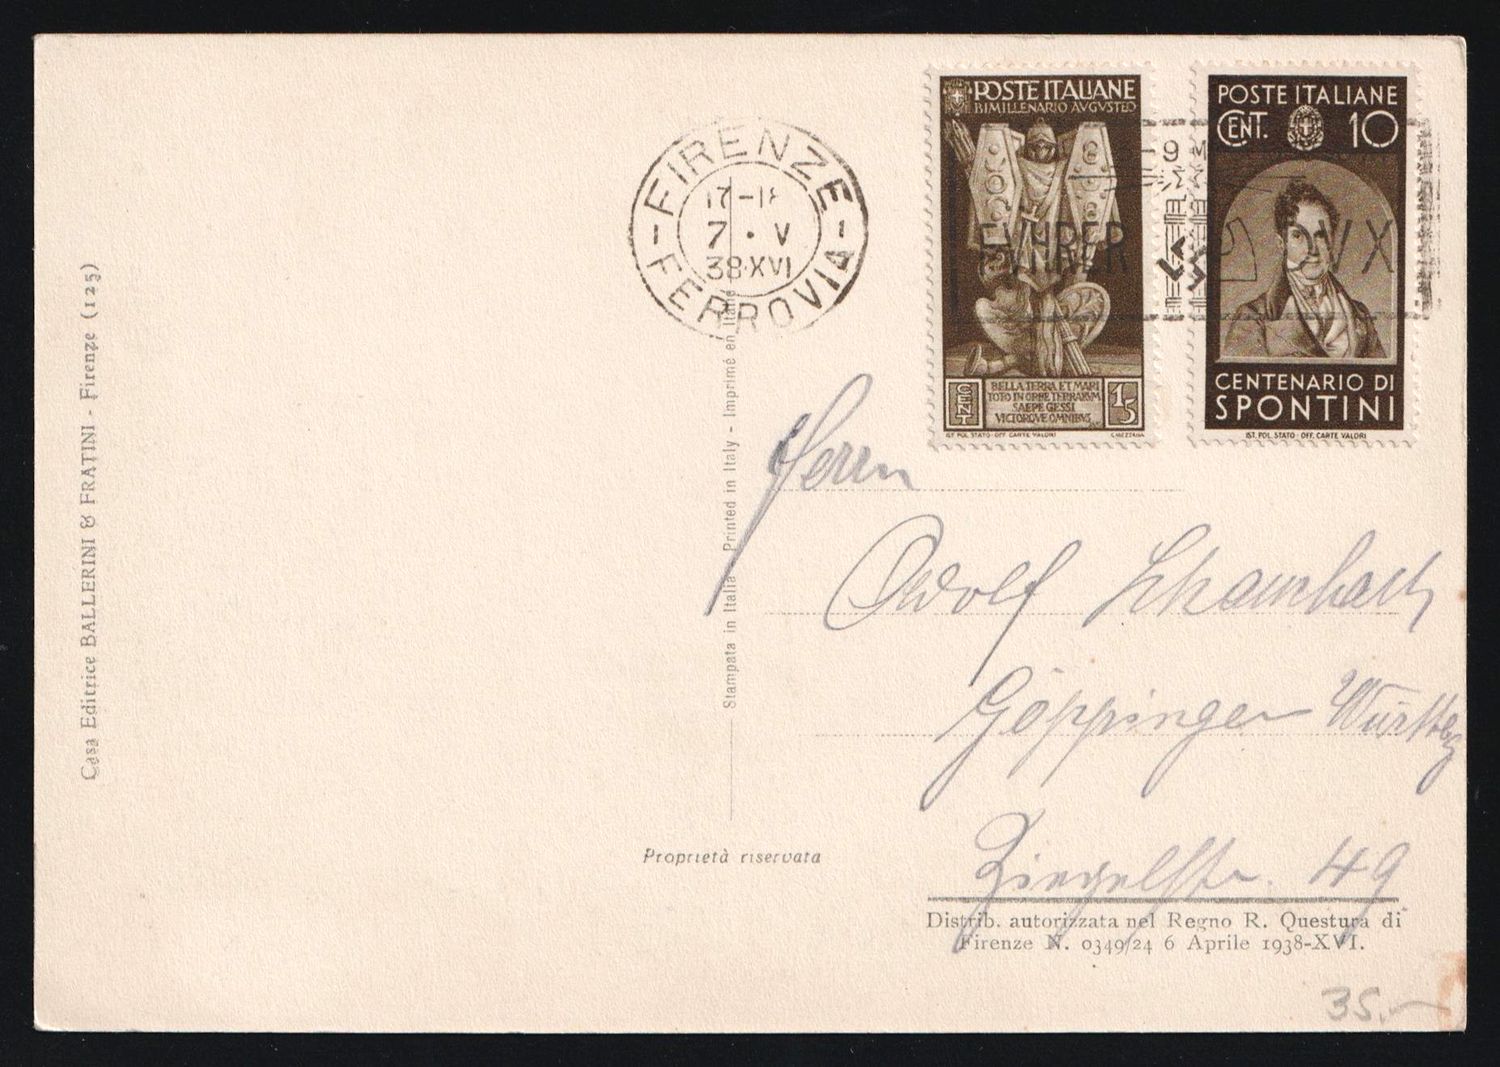 Casa Editrice BALLERINI & FRATINI - Firenze (125)
FIRENZE
17-18
7 · V
38·XVI
FERROVIA
Stampata in Italia - Printed in Italy - Imprimé en Italie
Proprietà riservata
POSTE ITALIANE
BIMILLENARIO AVGVSTEO
BELLA TERRA ET MARI
TOTO IN ORBE TERRARVM
SAEPE GESSI
VICTORQVE OMNIBVS
CENT
15
IST. POL. STATO - OFF. CARTE VALORI
C.MEZZANA
POSTE ITALIANE
CENT. 10
CENTENARIO DI
SPONTINI
IST. POL. STATO - OFF. CARTE VALORI
9 M
FVHRER
VX
Herrn
Adolf Schambach
Göppingen Württbg
Ziegelstr. 49
Distrib. autorizzata nel Regno R. Questura di
Firenze N. 0349/24 6 Aprile 1938-XVI.
35.-